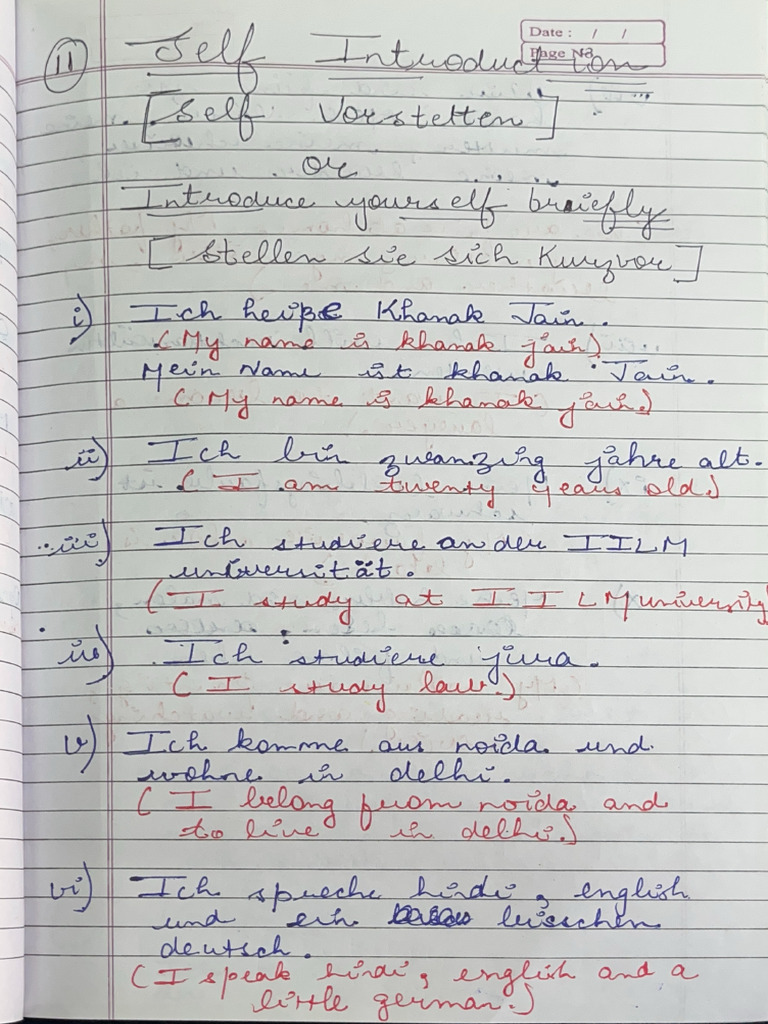 Date : / /
Page No.
11 Self Introduction
[Self Vorstellen]
or
Introduce yourself briefly
[Stellen sie sich Kurzvor]
i) Ich heiße Khanak Jain.
(My name is khanak jain)
Mein Name ist khanak Jain.
(My name is khanak jain.)
ii) Ich bin zwanzing jahre alt.
(I am twenty years old.)
iii) Ich studiere an der IILM
universität.
(I study at IILM university
iv) Ich studiere jura.
(I study law.)
v) Ich komme aus noida und
wohne in delhi.
(I belong from noida and
to live in delhi.)
vi) Ich spreche hindi, english
und ein bisschen
deutsch.
(I speak hindi, english and a
little german.)